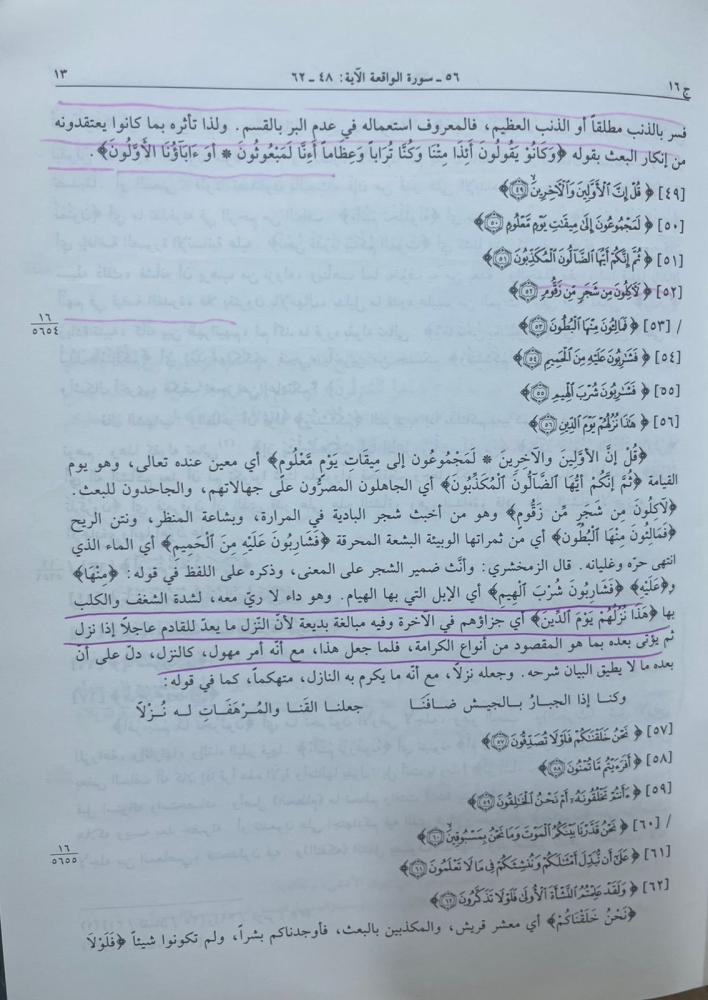 ج ١٦ ٥٦ ـ سورة الواقعة الآية: ٤٨ ـ ٦٢ ١٣
فسر بالذنب مطلقاً أو الذنب العظيم، فالمعروف استعماله في عدم البر بالقسم. ولذا تأثره بما كانوا يعتقدونه
من إنكار البعث بقوله ﴿وَكَانُوْ يَقُولُونَ أَئِذَا مِتْنَا وَكُنَّا تُرَاباً وَعِظَاماً أَءِنَّا لَمَبْعُوثُونَ * أَوَ ءَابَآؤُنَا الأَوَّلُونَ﴾.
[٤٩] ﴿ قُلْ إِنَّ ٱلْأَوَّلِينَ وَٱلْآخِرِينَ ۝٤٩﴾
[٥٠] ﴿ لَمَجْمُوعُونَ إِلَىٰ مِيقَٰتِ يَوْمٍ مَّعْلُومٍ ۝٥٠﴾
[٥١] ﴿ ثُمَّ إِنَّكُمْ أَيُّهَا ٱلضَّآلُّونَ ٱلْمُكَذِّبُونَ ۝٥١﴾
[٥٢] ﴿ لَآكِلُونَ مِن شَجَرٍ مِّن زَقُّومٍ ۝٥٢﴾
١٦
/ [٥٣] ﴿ فَمَالِـُٔونَ مِنْهَا ٱلْبُطُونَ ۝٥٣﴾
٥٦٥٤
[٥٤] ﴿ فَشَٰرِبُونَ عَلَيْهِ مِنَ ٱلْحَمِيمِ ۝٥٤﴾
[٥٥] ﴿ فَشَٰرِبُونَ شُرْبَ ٱلْهِيمِ ۝٥٥﴾
[٥٦] ﴿ هَٰذَا نُزُلُهُمْ يَوْمَ ٱلدِّينِ ۝٥٦﴾
﴿قُلْ إِنَّ الأَوَّلِينَ والآخِرِينَ * لَمَجْمُوعُون إِلى مِيقَاتِ يَوْمٍ مَّعْلُومٍ﴾ أي معين عنده تعالى، وهو يوم
القيامة ﴿ثُمَّ إِنَّكُمْ أَيُّهَا الضَّالُّونَ المُكَذِّبُونَ﴾ أي الجاهلون المصرُّون على جهالاتهم، والجاحدون للبعث.
﴿لآكِلُونَ مِن شَجَرٍ مِّن زَقُّومٍ﴾ وهو من أخبث شجر البادية في المرارة، وبشاعة المنظر، ونتن الريح
﴿فَمَالِئُونَ مِنْهَا البُطُونَ﴾ أي من ثمراتها الوبيئة البشعة المحرقة ﴿فَشَارِبُونَ عَلَيْهِ مِنَ الحَمِيمِ﴾ أي الماء الذي
انتهى حرّه وغليانه. قال الزمخشري: وأنَّث ضمير الشجر على المعنى، وذكره على اللفظ في قوله: ﴿مِنْهَا﴾
و﴿عَلَيْهِ﴾ ﴿فَشَارِبُونَ شُرْبَ الهِيمِ﴾ أي الإبل التي بها الهيام. وهو داء لا ريّ معه، لشدة الشغف والكلب
بها ﴿هَذَا نُزُلُهُمْ يَوْمَ الدِّينِ﴾ أي جزاؤهم في الآخرة وفيه مبالغة بديعة لأنّ النّزل ما يعدّ للقادم عاجلاً إذا نزل
ثم يؤتى بعده بما هو المقصود من أنواع الكرامة، فلما جعل هذا، مع أنّه أمر مهول، كالنزل، دلّ على أنّ
بعده ما لا يطيق البيان شرحه. وجعله نزلاً، مع أنّه ما يكرم به النازل، متهكماً، كما في قوله:
وكنا إذا الجبارُ بـالجيـش ضـافَنَـا جعلنـا القَنـا والمُـرْهَفَـاتِ لـه نُـزْلاً
[٥٧] ﴿ نَحْنُ خَلَقْنَٰكُمْ فَلَوْلَا تُصَدِّقُونَ ۝٥٧﴾
[٥٨] ﴿ أَفَرَءَيْتُم مَّا تُمْنُونَ ۝٥٨﴾
[٥٩] ﴿ ءَأَنتُمْ تَخْلُقُونَهُۥٓ أَمْ نَحْنُ ٱلْخَٰلِقُونَ ۝٥٩﴾
/ [٦٠] ﴿ نَحْنُ قَدَّرْنَا بَيْنَكُمُ ٱلْمَوْتَ وَمَا نَحْنُ بِمَسْبُوقِينَ ۝٦٠﴾
١٦
٥٦٥٥
[٦١] ﴿ عَلَىٰٓ أَن نُّبَدِّلَ أَمْثَٰلَكُمْ وَنُنشِئَكُمْ فِى مَا لَا تَعْلَمُونَ ۝٦١﴾
[٦٢] ﴿ وَلَقَدْ عَلِمْتُمُ ٱلنَّشْأَةَ ٱلْأُولَىٰ فَلَوْلَا تَذَكَّرُونَ ۝٦٢﴾
﴿نَحْنُ خَلَقْنَاكُمْ﴾ أي معشر قريش، والمكذبين بالبعث، فأوجدناكم بشراً، ولم تكونوا شيئاً ﴿فَلَوْلاَ